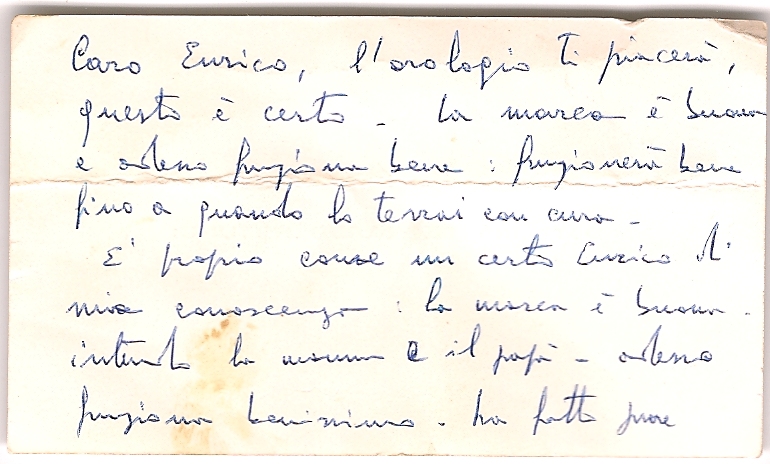 Caro Enrico, l'orologio ti piacerà,
questo è certo - la marca è buona
e adesso funziona bene : funzionerà bene
fino a quando lo terrai con cura -
E' proprio come un certo Enrico di
mia conoscenza : la marca è buona -
intendo la mamma e il papà - adesso
funziona benissimo - ha fatto pure